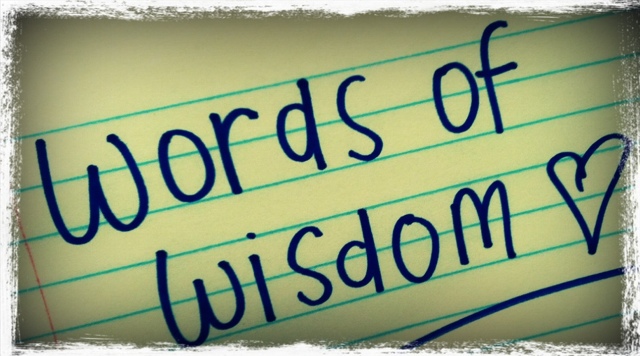 Words of
wisdom